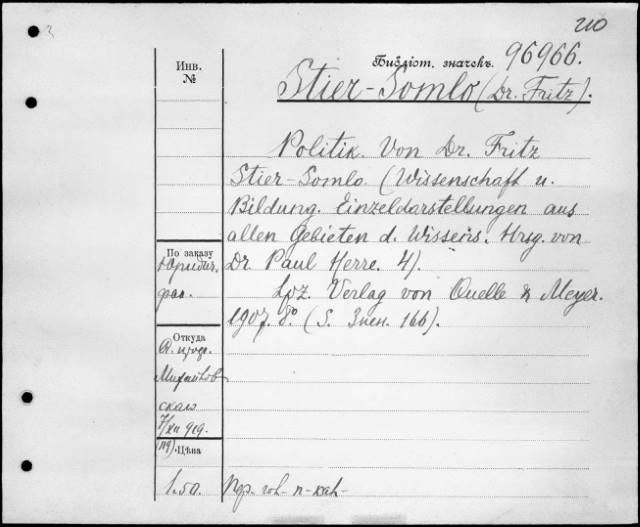 3
210
Инв.
№
Библіот. значекъ. 96966.
Stier-Somlo (Dr. Fritz).
Politik. Von Dr. Fritz
Stier-Somlo. (Wissenschaft u.
Bildung. Einzeldarstellungen aus
allen Gebieten d. Wissens. Hrsg. von
Dr. Paul Herre. 4).
Lpz. Verlag von Quelle & Meyer.
1907. 8° (S. 3 нен. 166).
По заказу
Юридич.
фак.
Откуда
Цѣна
1.50.